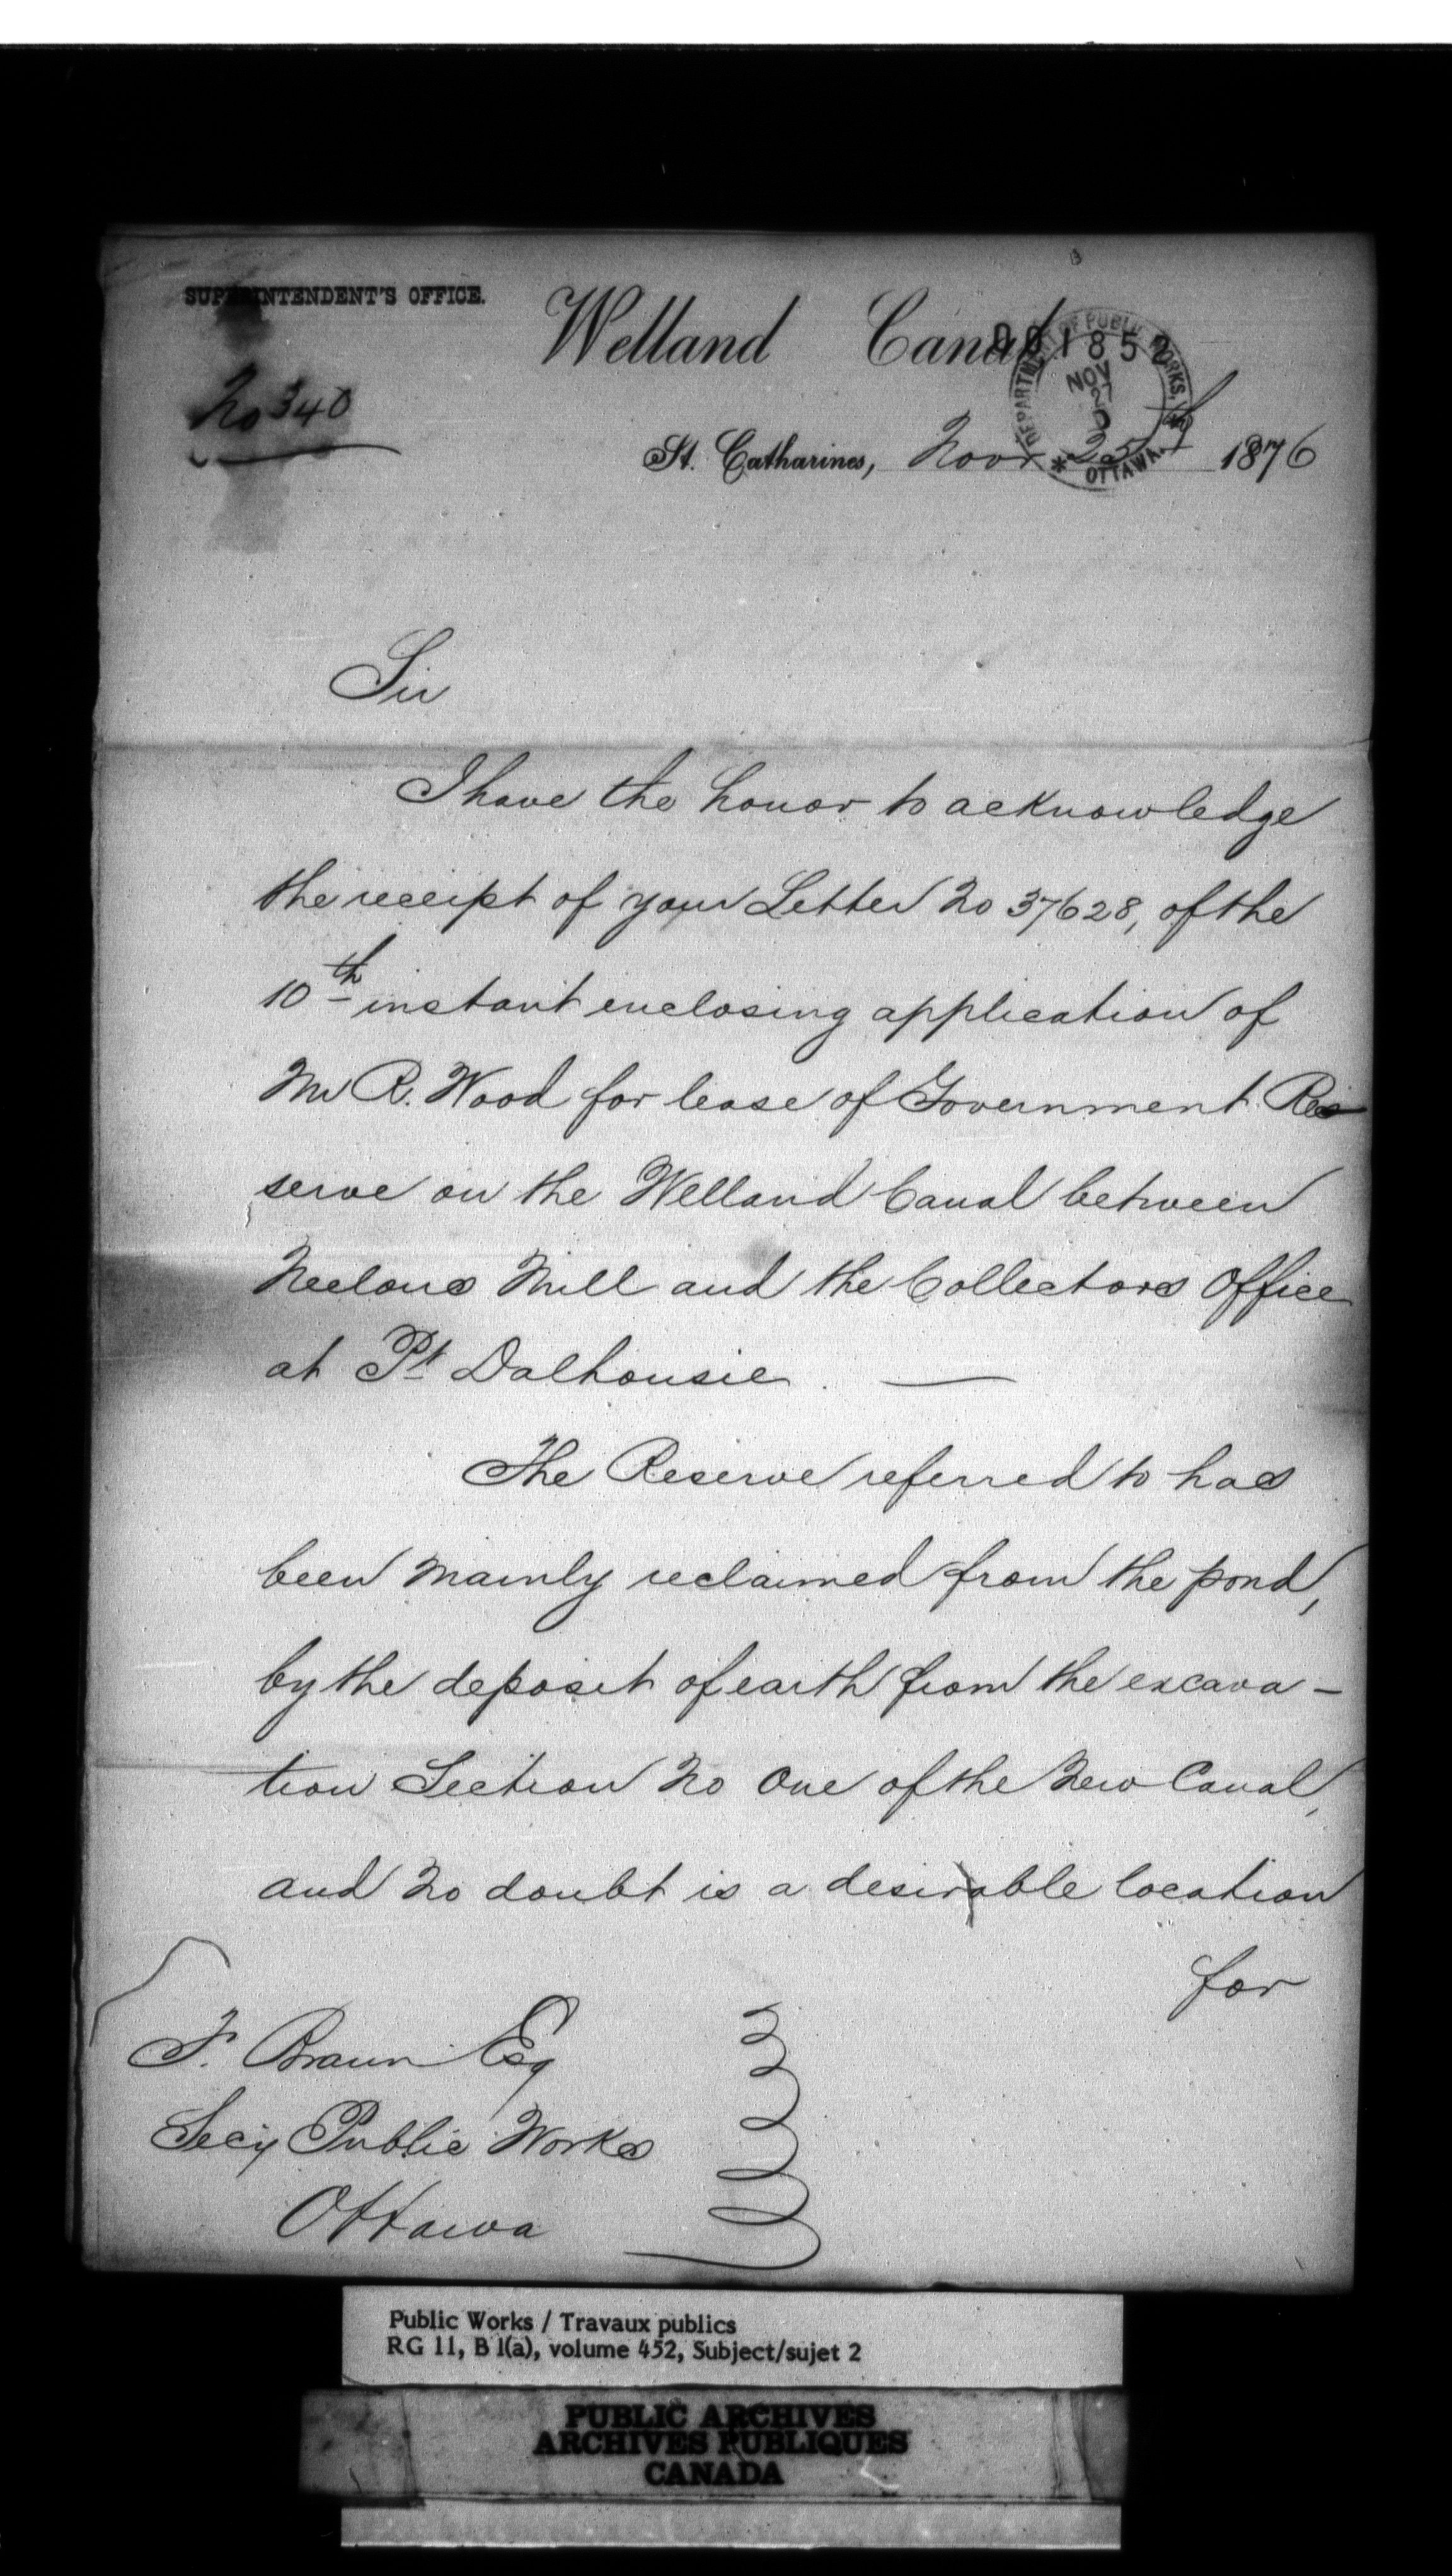 SUPERINTENDENT'S OFFICE.
Welland Canal
001852
DEPARTMENT OF PUBLIC WORKS, OTTAWA.
NOV
27
No 340
St. Catharines, Novr 25th 1876
Sir
I have the honor to acknowledge
the receipt of your Letter No 37628, of the
10th instant enclosing application of
Mr R. Wood for lease of Government Re
serve on the Welland Canal between
Neelons Mill and the Collectors Office
at Pt Dalhousie. —
The Reserve referred to has
been mainly reclaimed from the pond,
by the deposit of earth from the excava-
tion Section No One of the New Canal,
and no doubt is a desirable location
for
F. Braun Esq
Secy Public Works
Ottawa
Public Works / Travaux publics
RG 11, B 1(a), volume 452, Subject/sujet 2
PUBLIC ARCHIVES
ARCHIVES PUBLIQUES
CANADA